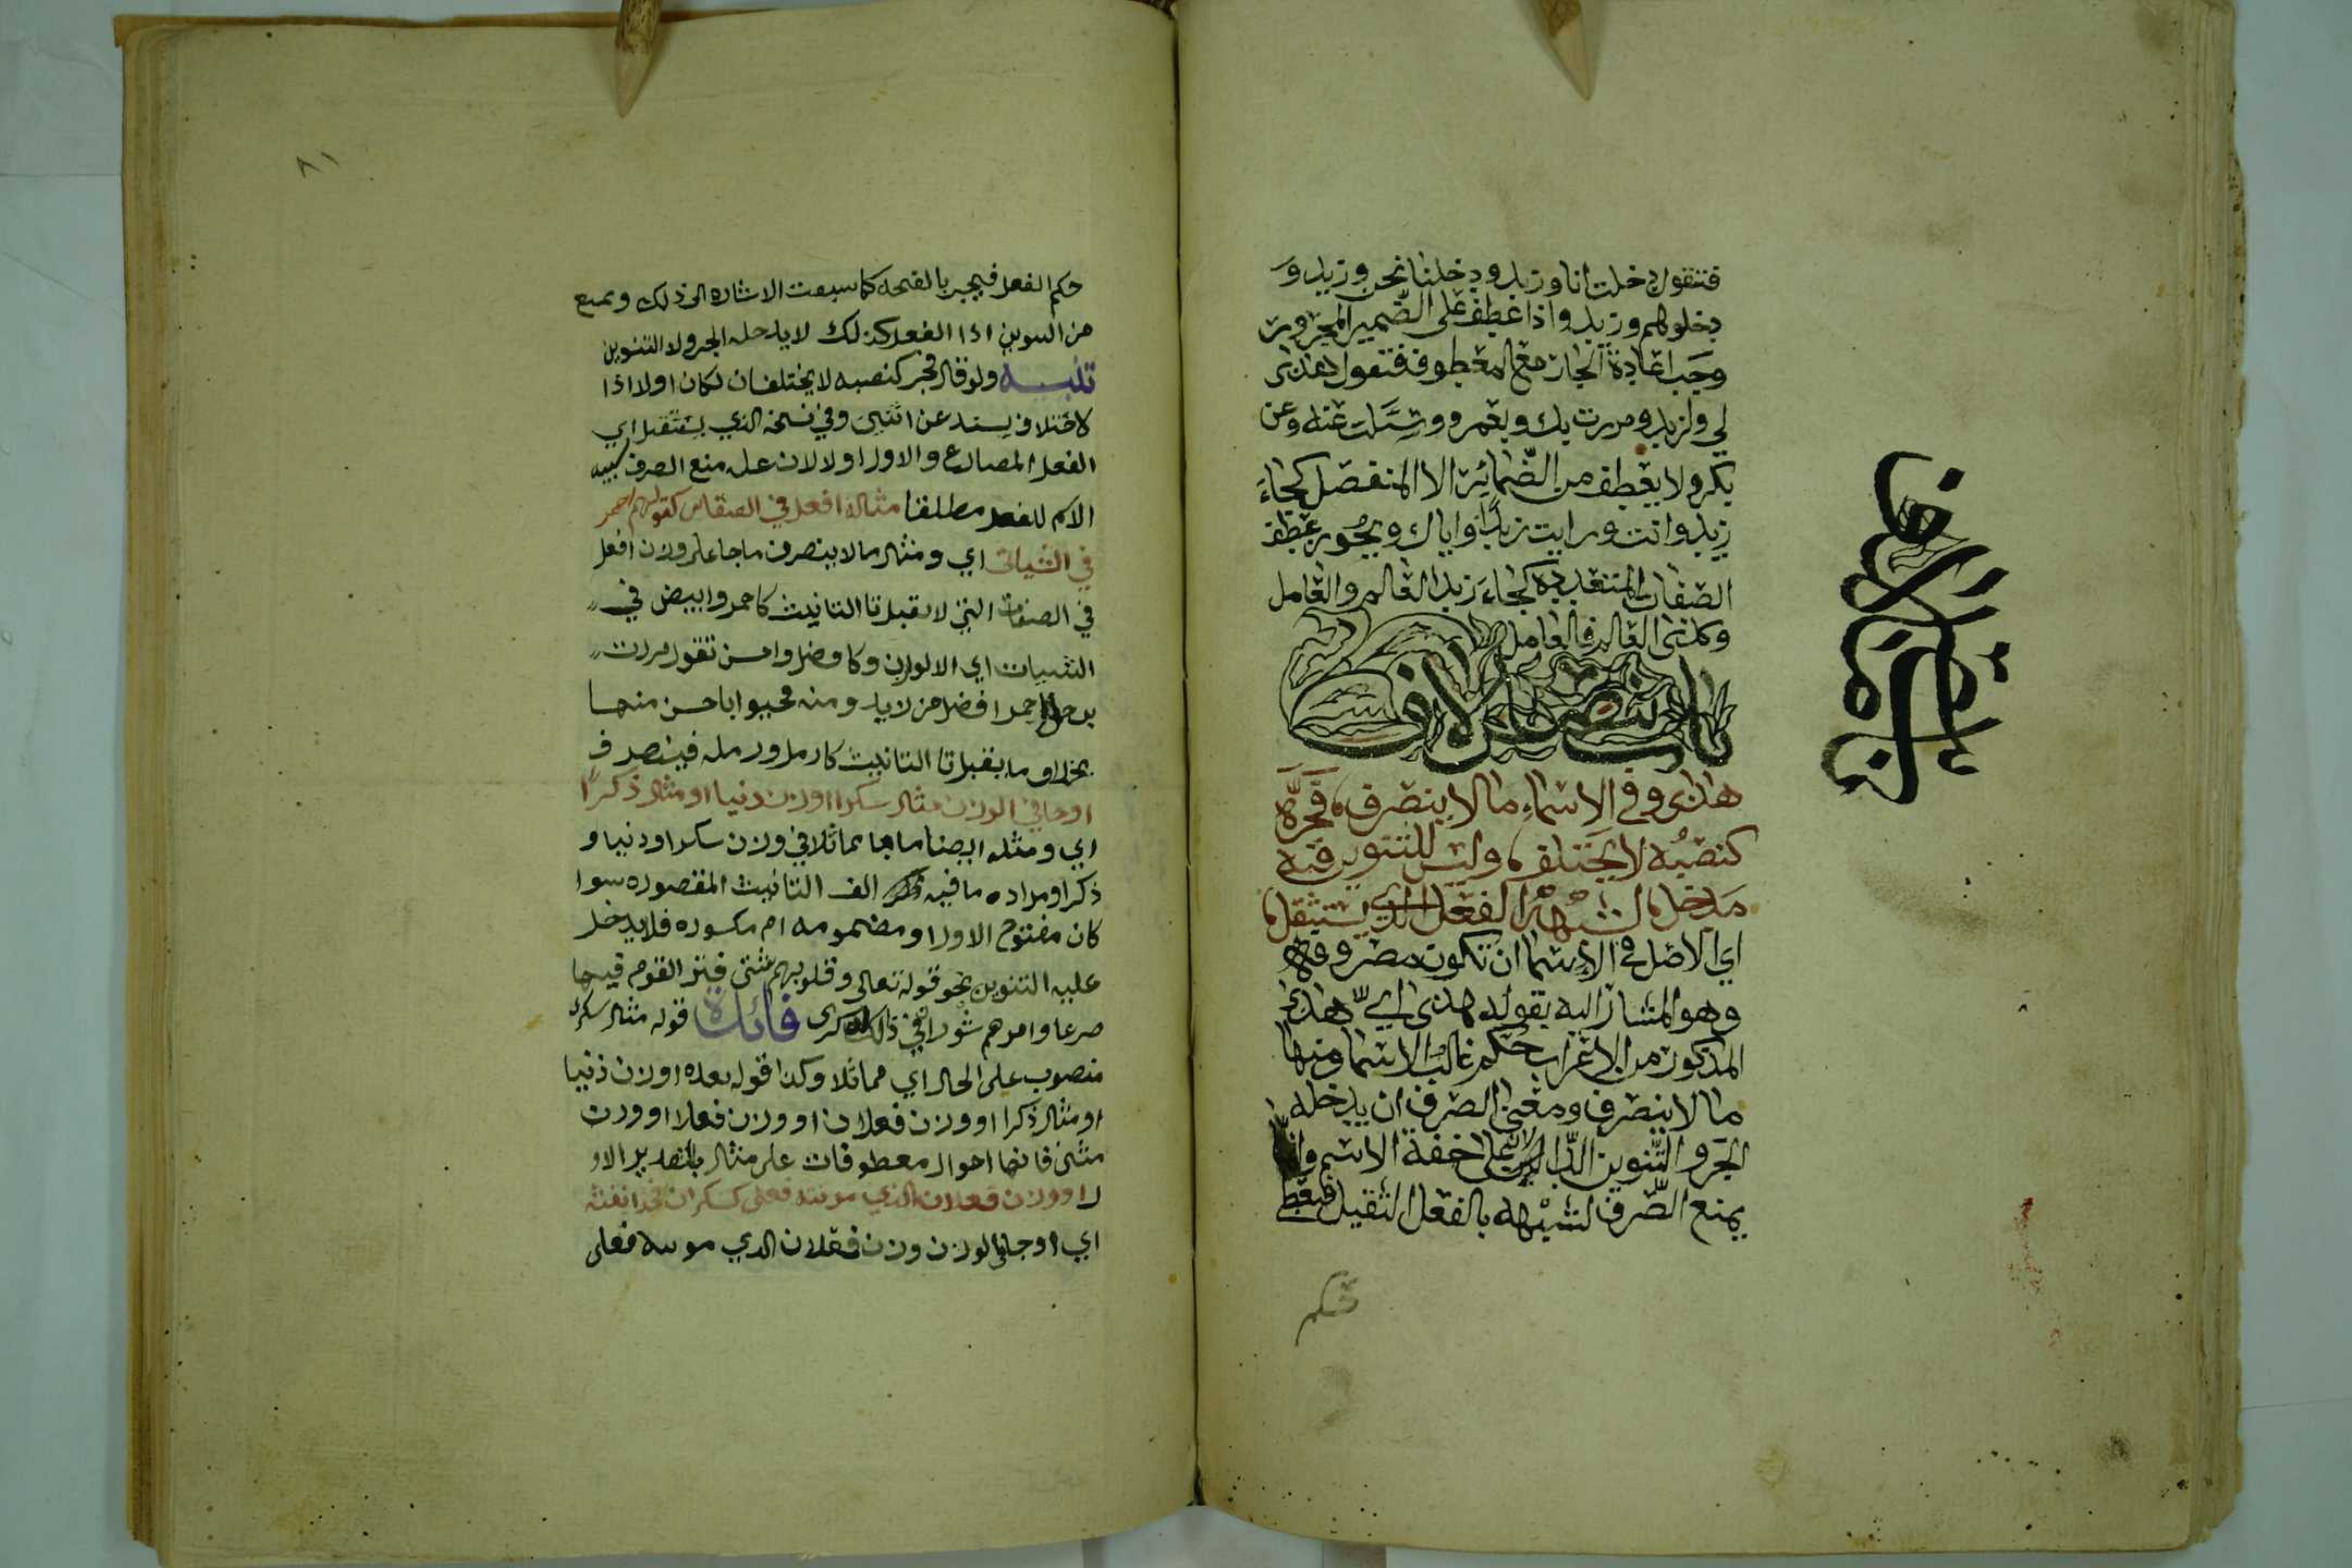 فتقول دخلت انا وزيد ودخلنا نحن وزيد و
دخلوا هم وزيد واذا عطف على الضمير المجرور
وجب اعادة الجار مع المعطوف فتقول هذى
لي ولزيد ومررت بك وبعمرو وسئلت عنه وعن
بكر ولا يعطف من الضمائر الا المنفصل كجاء
زيد وانت ورايت زيدا واياك ويجوز عطف
الصفات المتعددة كجاء زيد العالم والعامل
وكذى العالم فالعامل
باب ما لا ينصرف
هذى وفي الاسماء ما لا ينصرف فجره
كنصبه لا يختلف وليس للتنوين فيه
مدخل لشبهه الفعل الذي يستثقل
اي الاصل في الاسما ان تكون مصروفة
وهو المشار اليه بقوله هذى اي هذى
المذكور من الاعراب حكم غالب الاسما ومنها
ما لا ينصرف ومعنى الصرف ان يدخله
الجر والتنوين الدال على خفة الاسم وانما
يمنع الصرف لشبهه بالفعل الثقيل فيعطى
حكم
٨١
حكم الفعل فيجر بالفتحه كما سبقت الاشاره الى ذلك ويمنع
من التنوين اذا الفعل كذلك لا يدخله الجر ولا التنوين
تنبيه ولو قال فجر كنصبه لا يختلفان لكان اولا اذا
لاختلاف يسند عن اثنين وفي نسخه الذي يستثقل اي
الفعل المضارع والاول اولا لان عله منع الصرف شبيه
الاسم للفعل مطلقا مثاله افعل في الصفات كقولهم احمر
في الشيات اي ومثال ما لا ينصرف ما جا على وزن افعل
في الصفات التي لا تقبل تا التانيث كاحمر وابيض في
الشيات اي الالوان وكافضل واحسن تقول مررت
برجل احمر افضل من زيد ومنه فحيوا باحسن منها
بخلاف ما يقبل تا التانيث كارمل ورمله فينصرف
او جا في الوزن مثال سكرا او وزن دنيا او مثال ذكرا
اي ومثله ايضا ما جا مماثلا في وزن سكرا ودنيا و
ذكرا ومراده ما فيه الف التانيث المقصوره سوا
كان مفتوح الاول او مضمومه ام مكسوره فلا يدخل
عليه التنوين نحو قوله تعالى وقلوبهم شتى فترى القوم فيها
صرعا وامرهم شورا في ذلك لذكرى فائدة قوله مثال سكرى
منصوب على الحال اي مماثلا وكذا قوله بعده او وزن دنيا
او مثال ذكرا او وزن فعلان او وزن فعلا او وزن
مثنى فانها احوال معطوفات على مثال بالتقدير الاو
ل او وزن فعلان الذي مونثه فعلى كسكران فخذ انفثه
اي او جا في الوزن وزن فعلان الذي مونثه فعلى